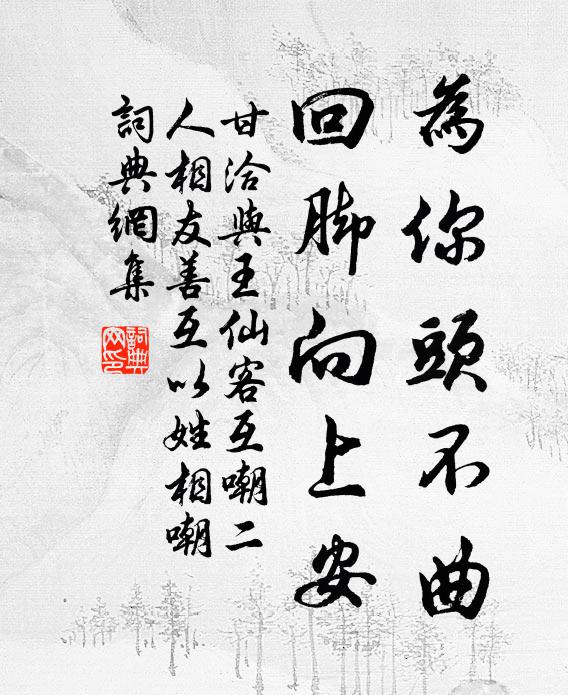 為你頭不曲
回脚向上安
甘洽與王仙客互嘲二
人相友善互以姓相嘲
詞典網集
詞典網印